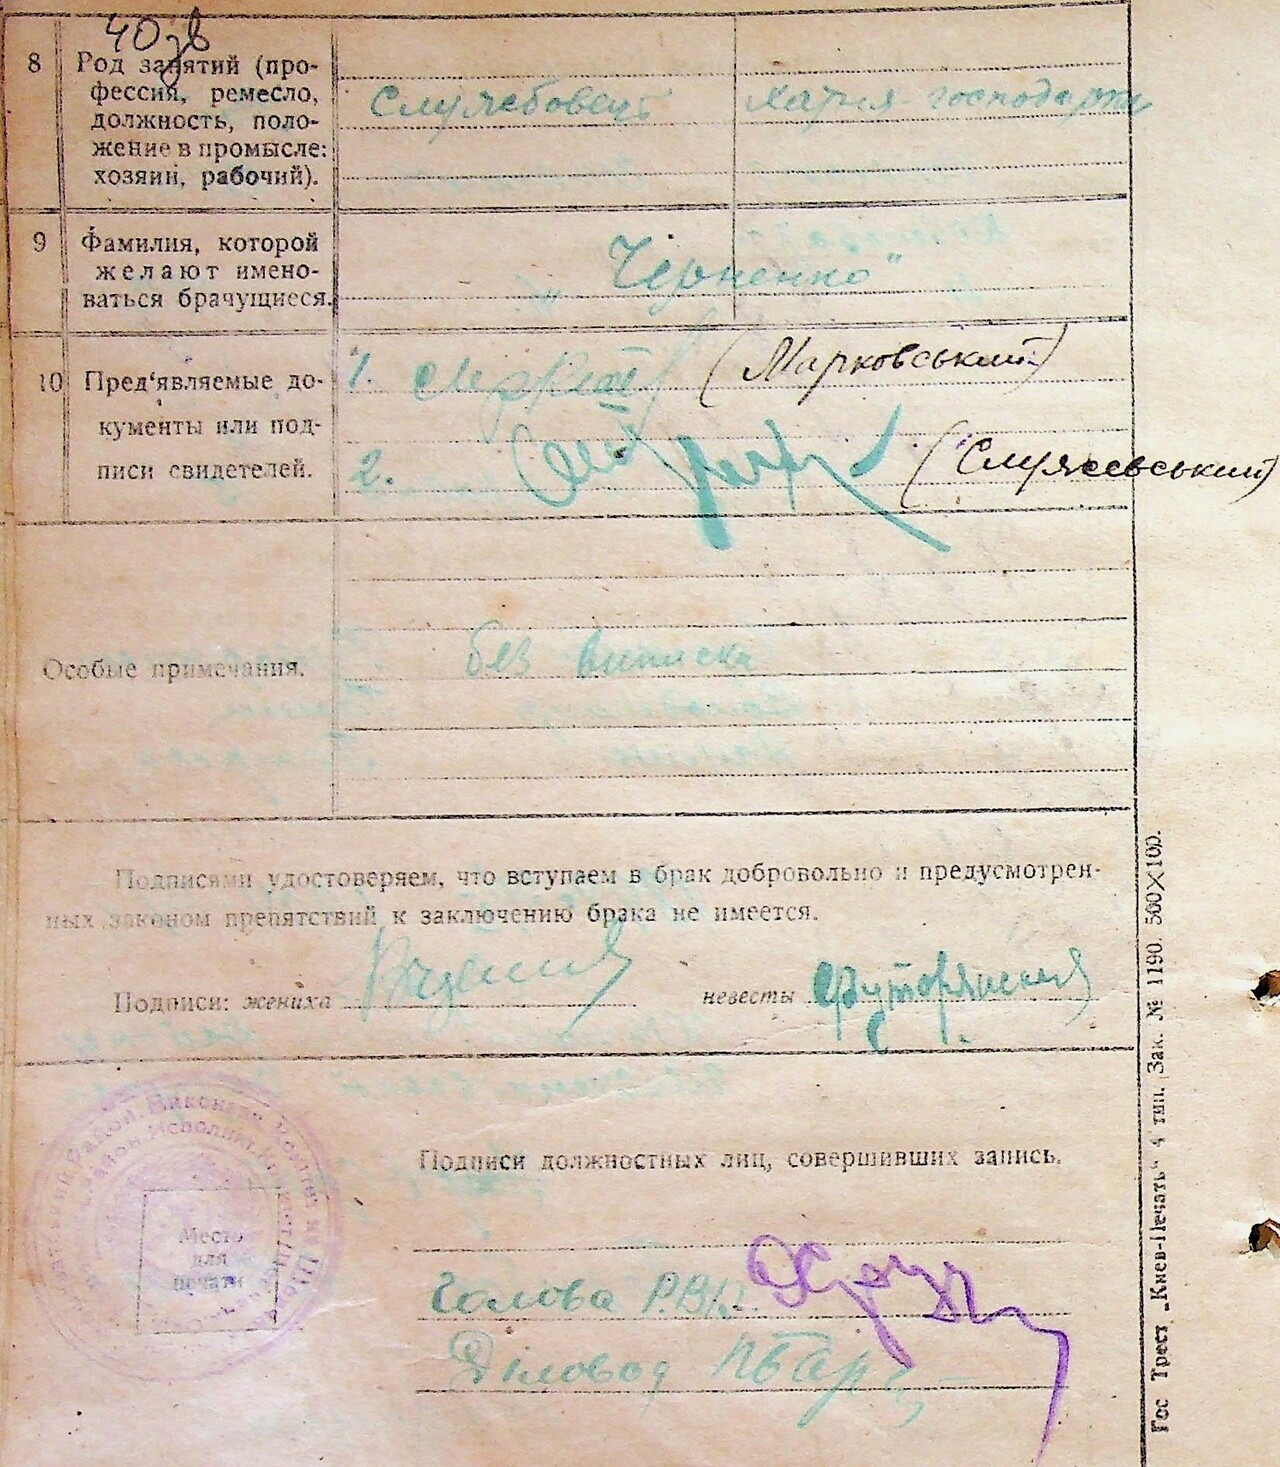 40зв
8 Род занятий (про-
фессия, ремесло,
должность, поло-
жение в промысле:
хозяин, рабочий).
Службовець
9 Фамилия, которой
желают имено-
ваться брачущиеся.
„Черненко"
10 Пред'являемые до-
кументы или под-
писи свидетелей.
1. (Марковський)
2. (Служевський)
Особые примечания.
без виписки
Подписями удостоверяем, что вступаем в брак добровольно и предусмотрен-
ных законом препятствий к заключению брака не имеется.
Подписи: жениха невесты
Место
для
печати
Подписи должностных лиц, совершивших запись.
Голова Р.В.К.
Діловод
Гос Трест „Киев-Печать" 4 тип. Зак. № 1190. 500×100.